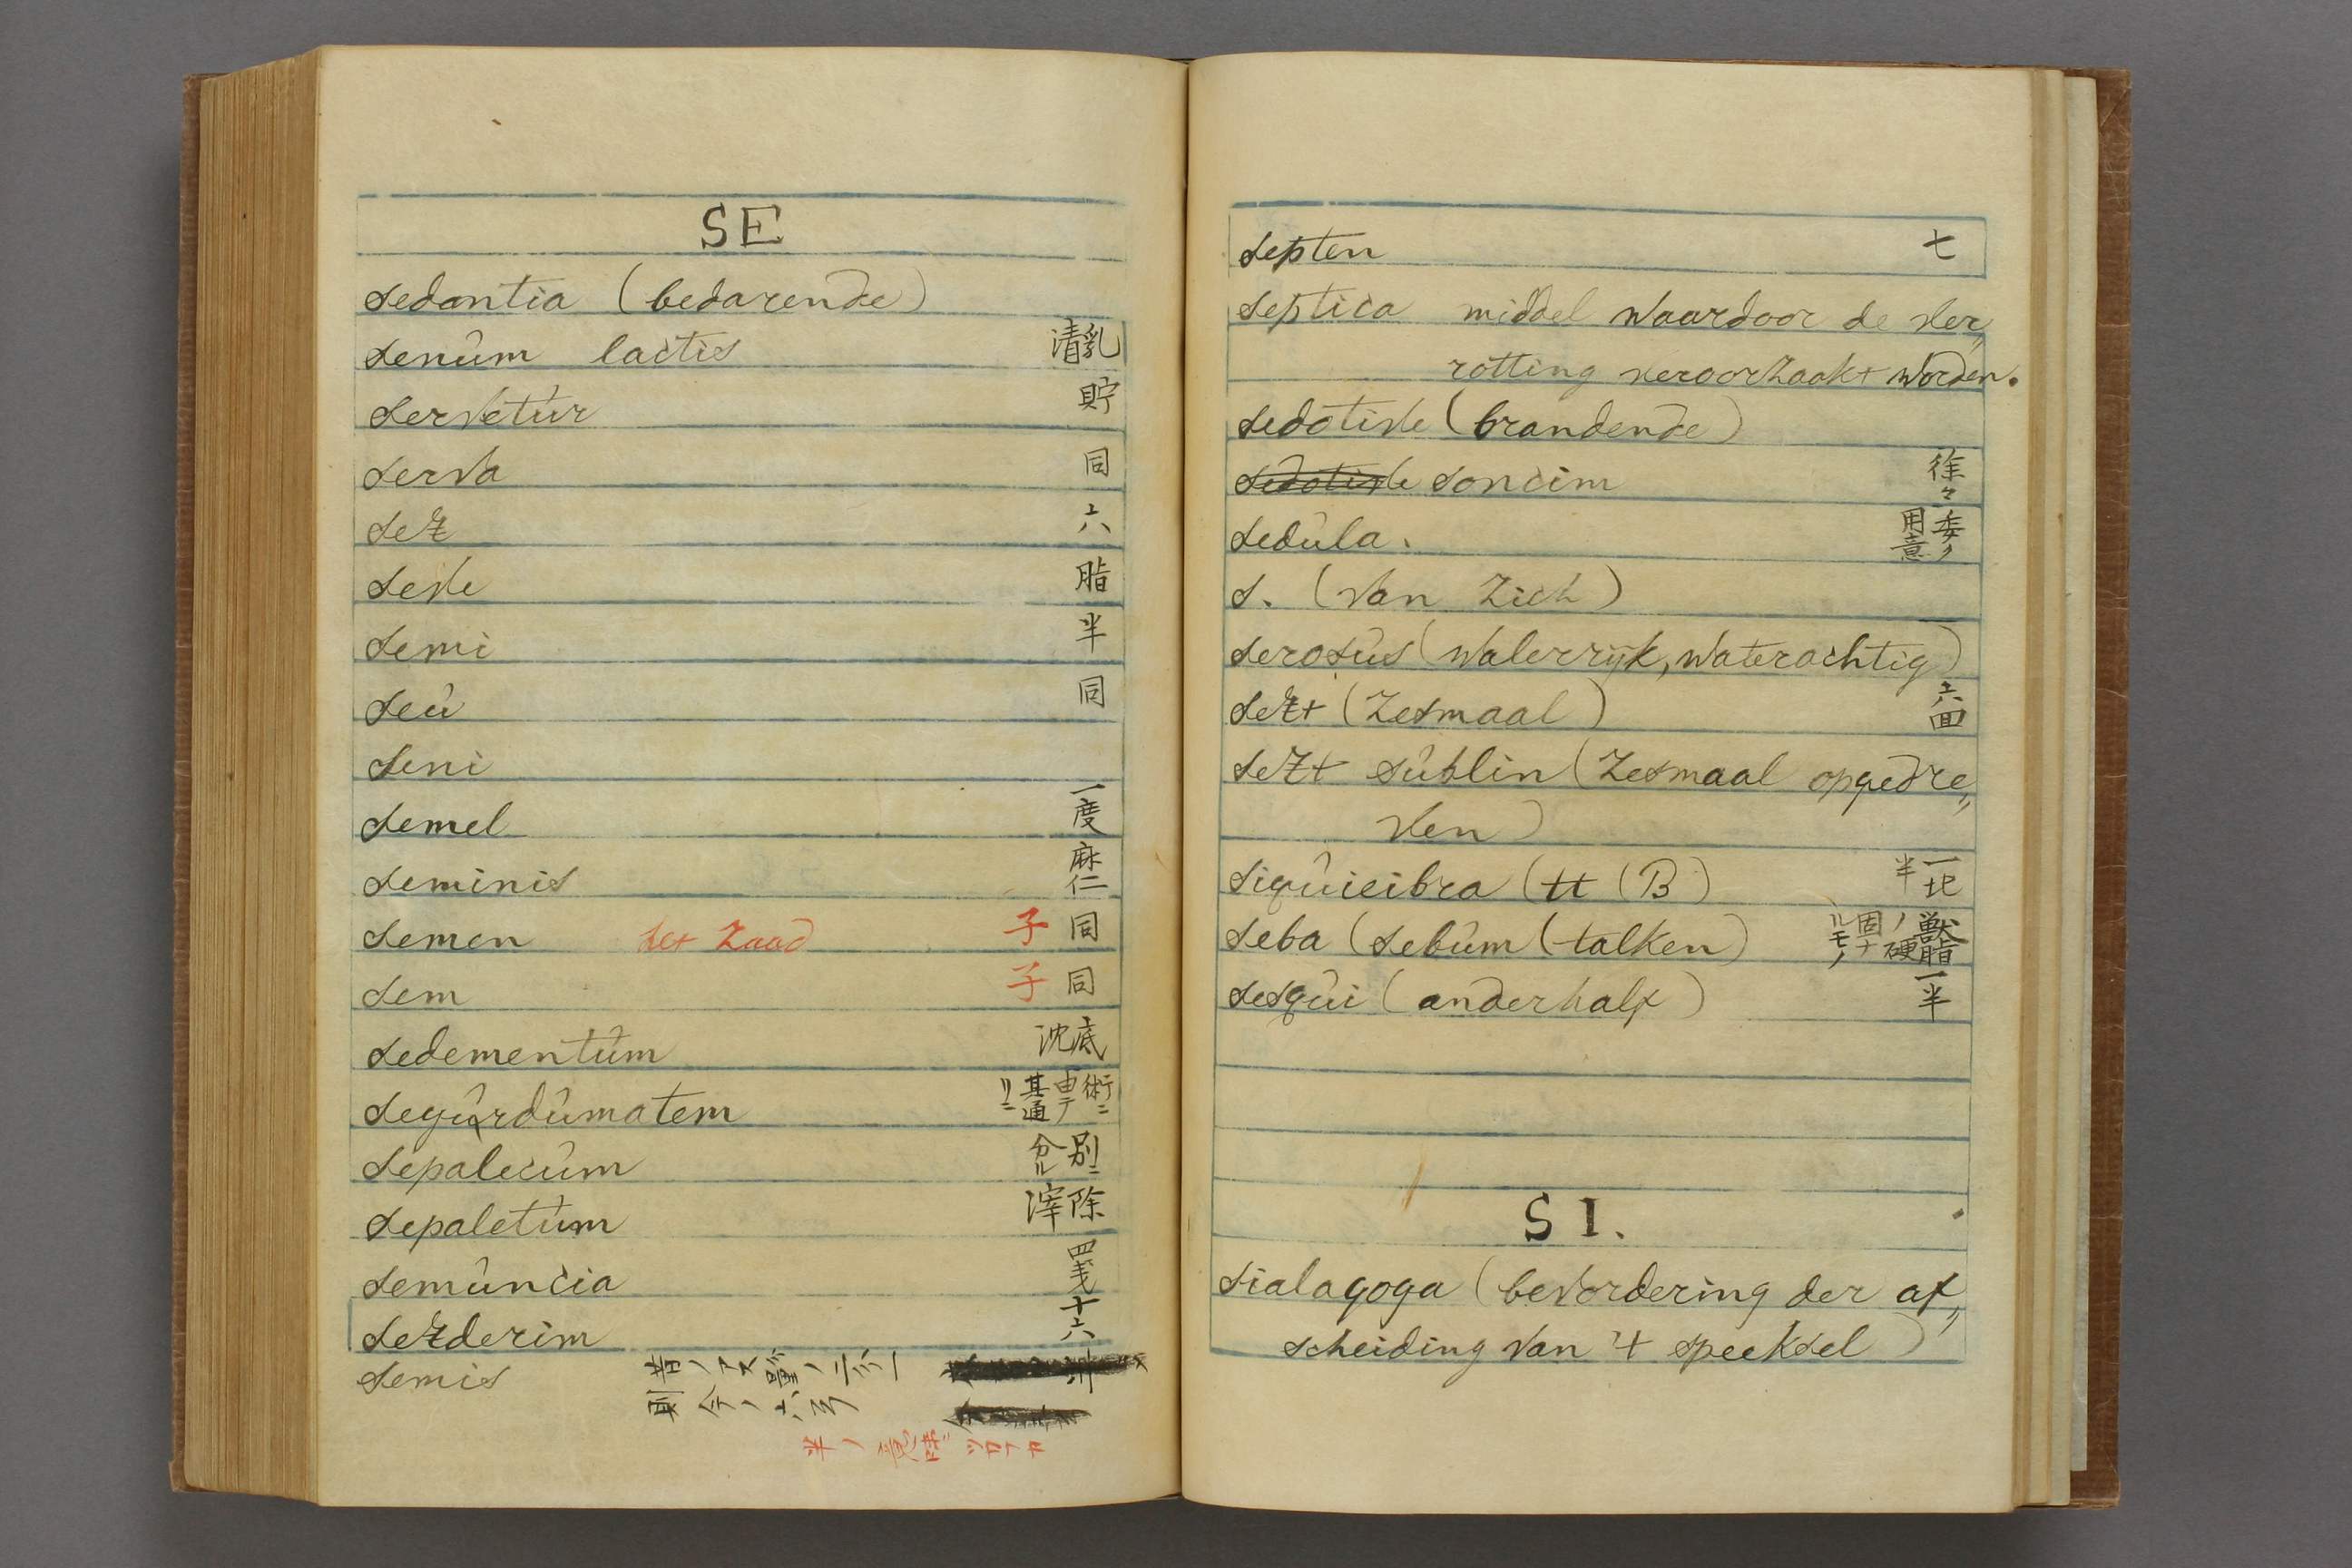 SE
sedantia (bedarende)
senûm lactis 清乳
servetúr 貯
serva 同
sex 六
seve 脂
semi 半
seû 同
seni
semel 一度
seminis 麻仁
semen het zaad 子 同
sem 子 同
sedementûm 沈底
segûrdûmatem 術ニ由テ其通リニ
sepalecûm 別ニ分ル
sepaletûm 滓除
semûncia 四戔
sexderim 十六
semis
septen 七
septica middel waardoor de ver„
rotting veroorzaakt worden.
sedotive (brandende)
sedotive soncim 徐々
sedûla. 委ク用意
s. (van zich)
serosûs (walerrijk, waterachtig)
sext (zesmaal) 六回
sext sûblin (zesmaal opgedre„
ven)
siqûieibra (tt (B) 一
半
seba (sebûm (talken) 獣脂ノ硬固ナルモノ
sesqûi (anderhalf) 一半
SI.
sialagoga (bevordering der af„
scheiding van 't speeksel)